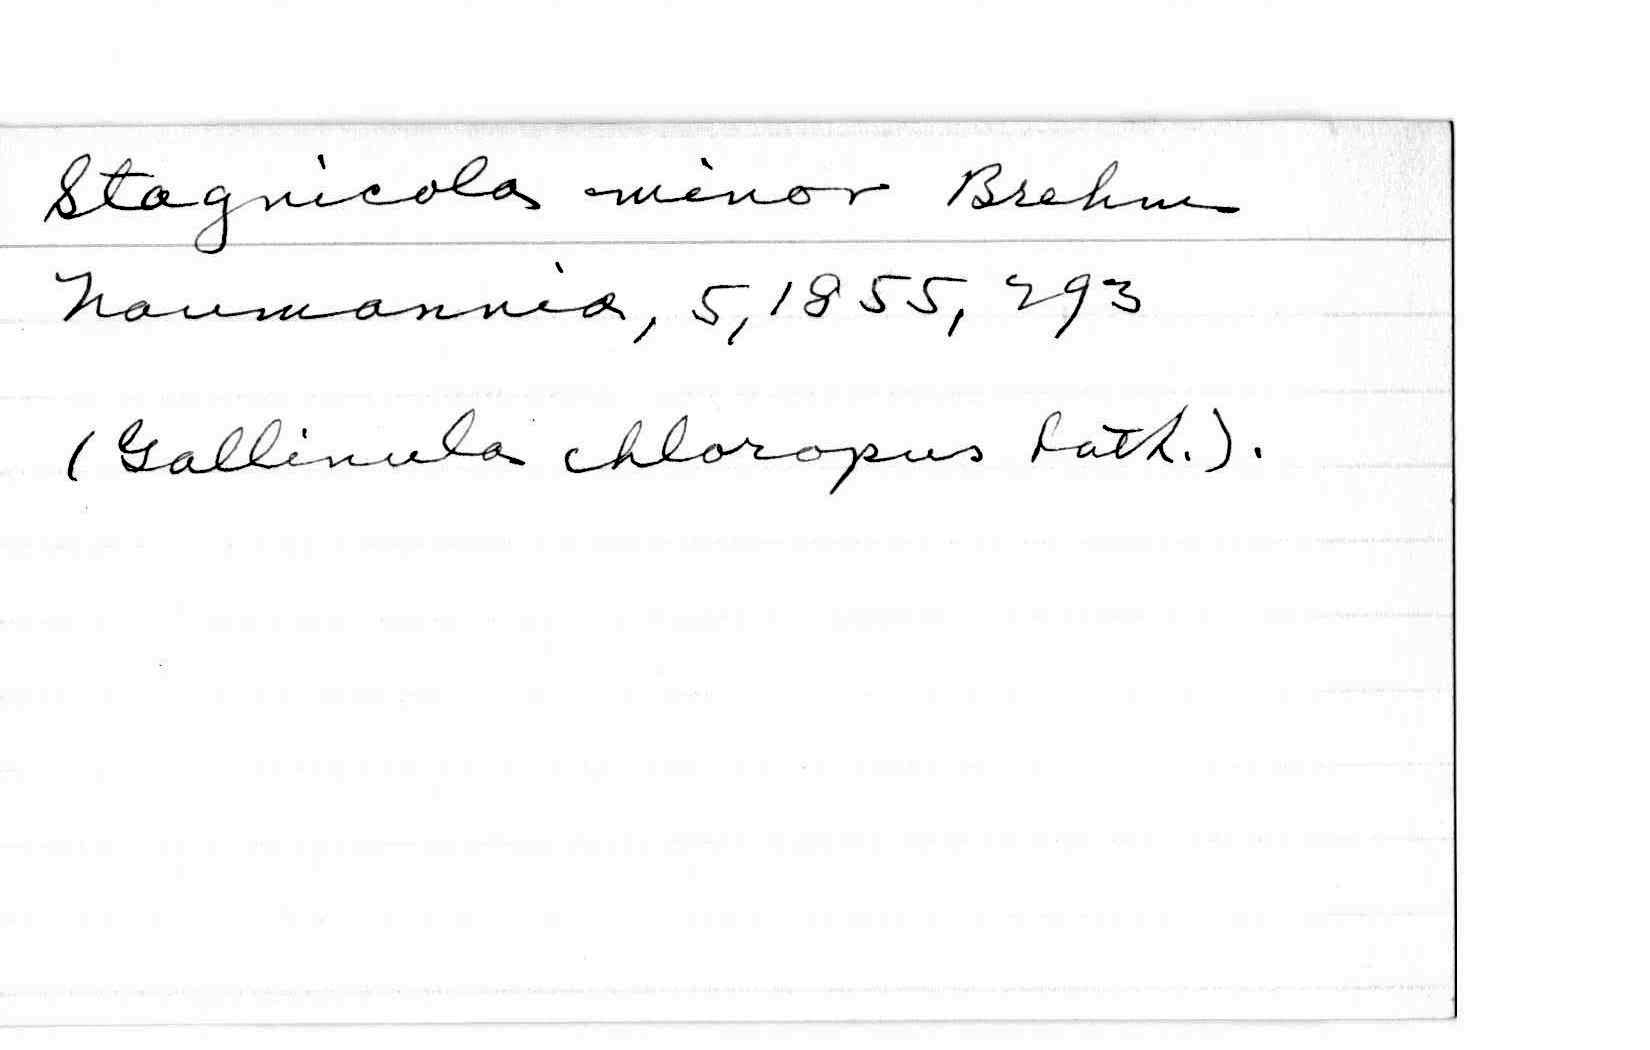 Stagnicola minor Brehm
Naumannia, 5, 1855, 293
(Gallinula chloropus Lath.).